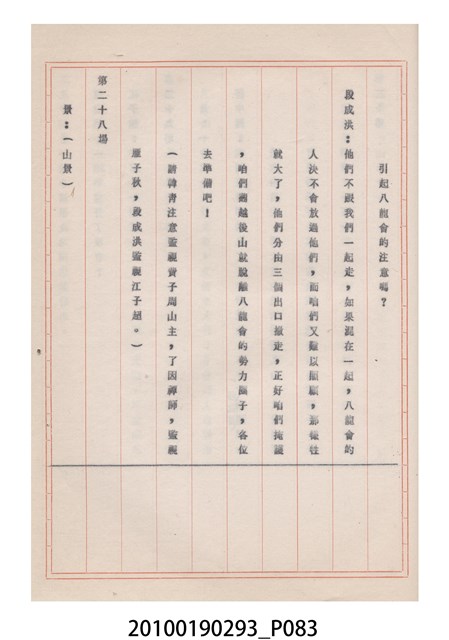 引起八龍會的注意嗎？
段成洪：他們不跟我們一起走，如果混在一起，八龍會的
人決不會放過他們，而咱們又難以照顧，那犧牲
就大了，他們分由三個出口撤走，正好咱們掩護
，咱們翻越後山就脫離八龍會的勢力圈子，各位
去準備吧！
（請韓青注意監視費子周山主，了因禪師，監視
雁子秋，段成洪監視江子超。）
第二十八場
景：（山景）
20100190293_P083